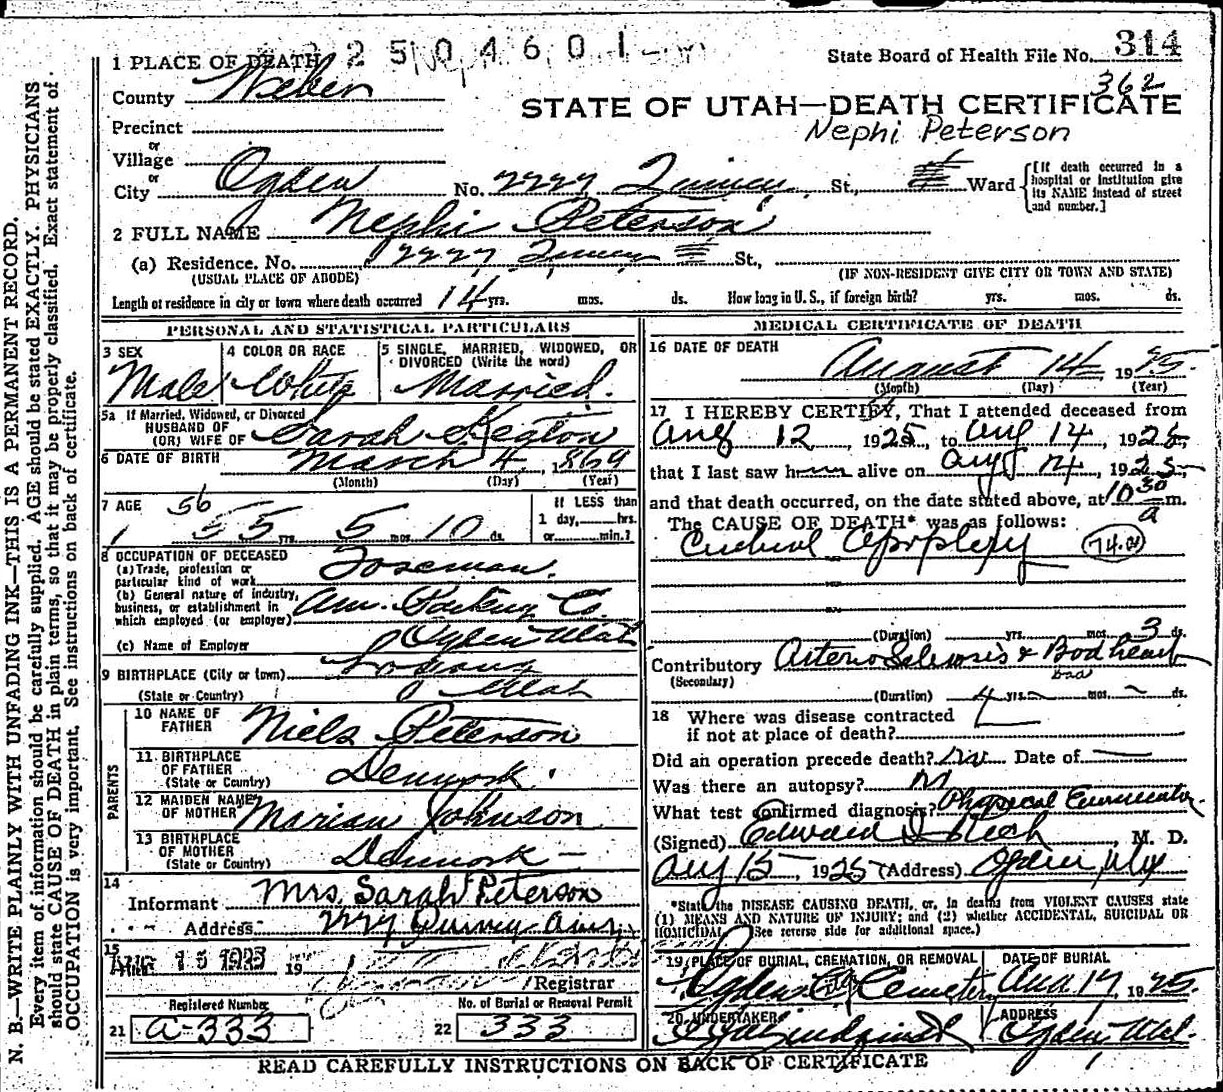 2 5 0 4 6 0 1
State Board of Health File No. 314
362
1 PLACE OF DEATH
County Weber
STATE OF UTAH—DEATH CERTIFICATE
Precinct
Nephi Peterson
or
Village
or
City Ogden No. 2227 Quincy St., Ward
[If death occurred in a hospital or institution give its NAME instead of street and number.]
2 FULL NAME Nephi Peterson
(a) Residence. No. 2227 Quincy St.,
(USUAL PLACE OF ABODE) (IF NON-RESIDENT GIVE CITY OR TOWN AND STATE)
Length of residence in city or town where death occurred 14 yrs. mos. ds. How long in U. S., if foreign birth? yrs. mos. ds.
PERSONAL AND STATISTICAL PARTICULARS
3 SEX 4 COLOR OR RACE 5 SINGLE, MARRIED, WIDOWED, OR
DIVORCED (Write the word)
Male White Married.
5a If Married, Widowed, or Divorced
HUSBAND OF
(OR) WIFE OF Sarah Keaton
6 DATE OF BIRTH March 4, 1869
(Month) (Day) (Year)
7 AGE 56 If LESS than
1 day, hrs.
55 yrs. 5 mos. 10 ds. or min.?
8 OCCUPATION OF DECEASED
(a) Trade, profession or
particular kind of work Foreman.
(b) General nature of industry,
business, or establishment in
which employed (or employer) Am. Packing Co.
Ogden Utah
(c) Name of Employer
9 BIRTHPLACE (City or town) Logan
(State or Country) Utah
PARENTS
10 NAME OF
FATHER Niels Peterson
11 BIRTHPLACE
OF FATHER
(State or Country) Denmark.
12 MAIDEN NAME
OF MOTHER Marian Johnson
13 BIRTHPLACE
OF MOTHER
(State or Country) Denmark —
14
Informant Mrs. Sarah Peterson
Address Quincy Ave.
15
AUG 15 1925 19
Registrar
Registered Number No. of Burial or Removal Permit
21 a-333 22 333
MEDICAL CERTIFICATE OF DEATH
16 DATE OF DEATH
August 14 1925.
(Month) (Day) (Year)
17 I HEREBY CERTIFY, That I attended deceased from
Aug 12 1925, to Aug 14, 1925
that I last saw him alive on Aug 14, 1925
and that death occurred, on the date stated above, at 10 30 a m.
The CAUSE OF DEATH* was as follows:
Cerebral Apoplexy 74.a
(Duration) yrs. mos. 3 ds.
Contributory Arterio Sclerosis & Bad heart
bad
(Secondary)
(Duration) 4 yrs. — mos. — ds.
18 Where was disease contracted
if not at place of death?
Did an operation precede death? No Date of —
Was there an autopsy? No
What test confirmed diagnosis? Physical Examination
(Signed) Edward M. D.
Aug 15, 1925 (Address) Ogden, Utah
*State the DISEASE CAUSING DEATH, or, in deaths from VIOLENT CAUSES state
(1) MEANS AND NATURE OF INJURY; and (2) whether ACCIDENTAL, SUICIDAL OR
HOMICIDAL. (See reverse side for additional space.)
19 PLACE OF BURIAL, CREMATION, OR REMOVAL DATE OF BURIAL
Ogden City Cemetery Aug 17 1925.
20 UNDERTAKER ADDRESS
Ogden Utah.
READ CAREFULLY INSTRUCTIONS ON BACK OF CERTIFICATE
N. B.—WRITE PLAINLY WITH UNFADING INK—THIS IS A PERMANENT RECORD.
Every item of information should be carefully supplied. AGE should be stated EXACTLY. PHYSICIANS
should state CAUSE OF DEATH in plain terms, so that it may be properly classified. Exact statement of
OCCUPATION is very important. See instructions on back of certificate.